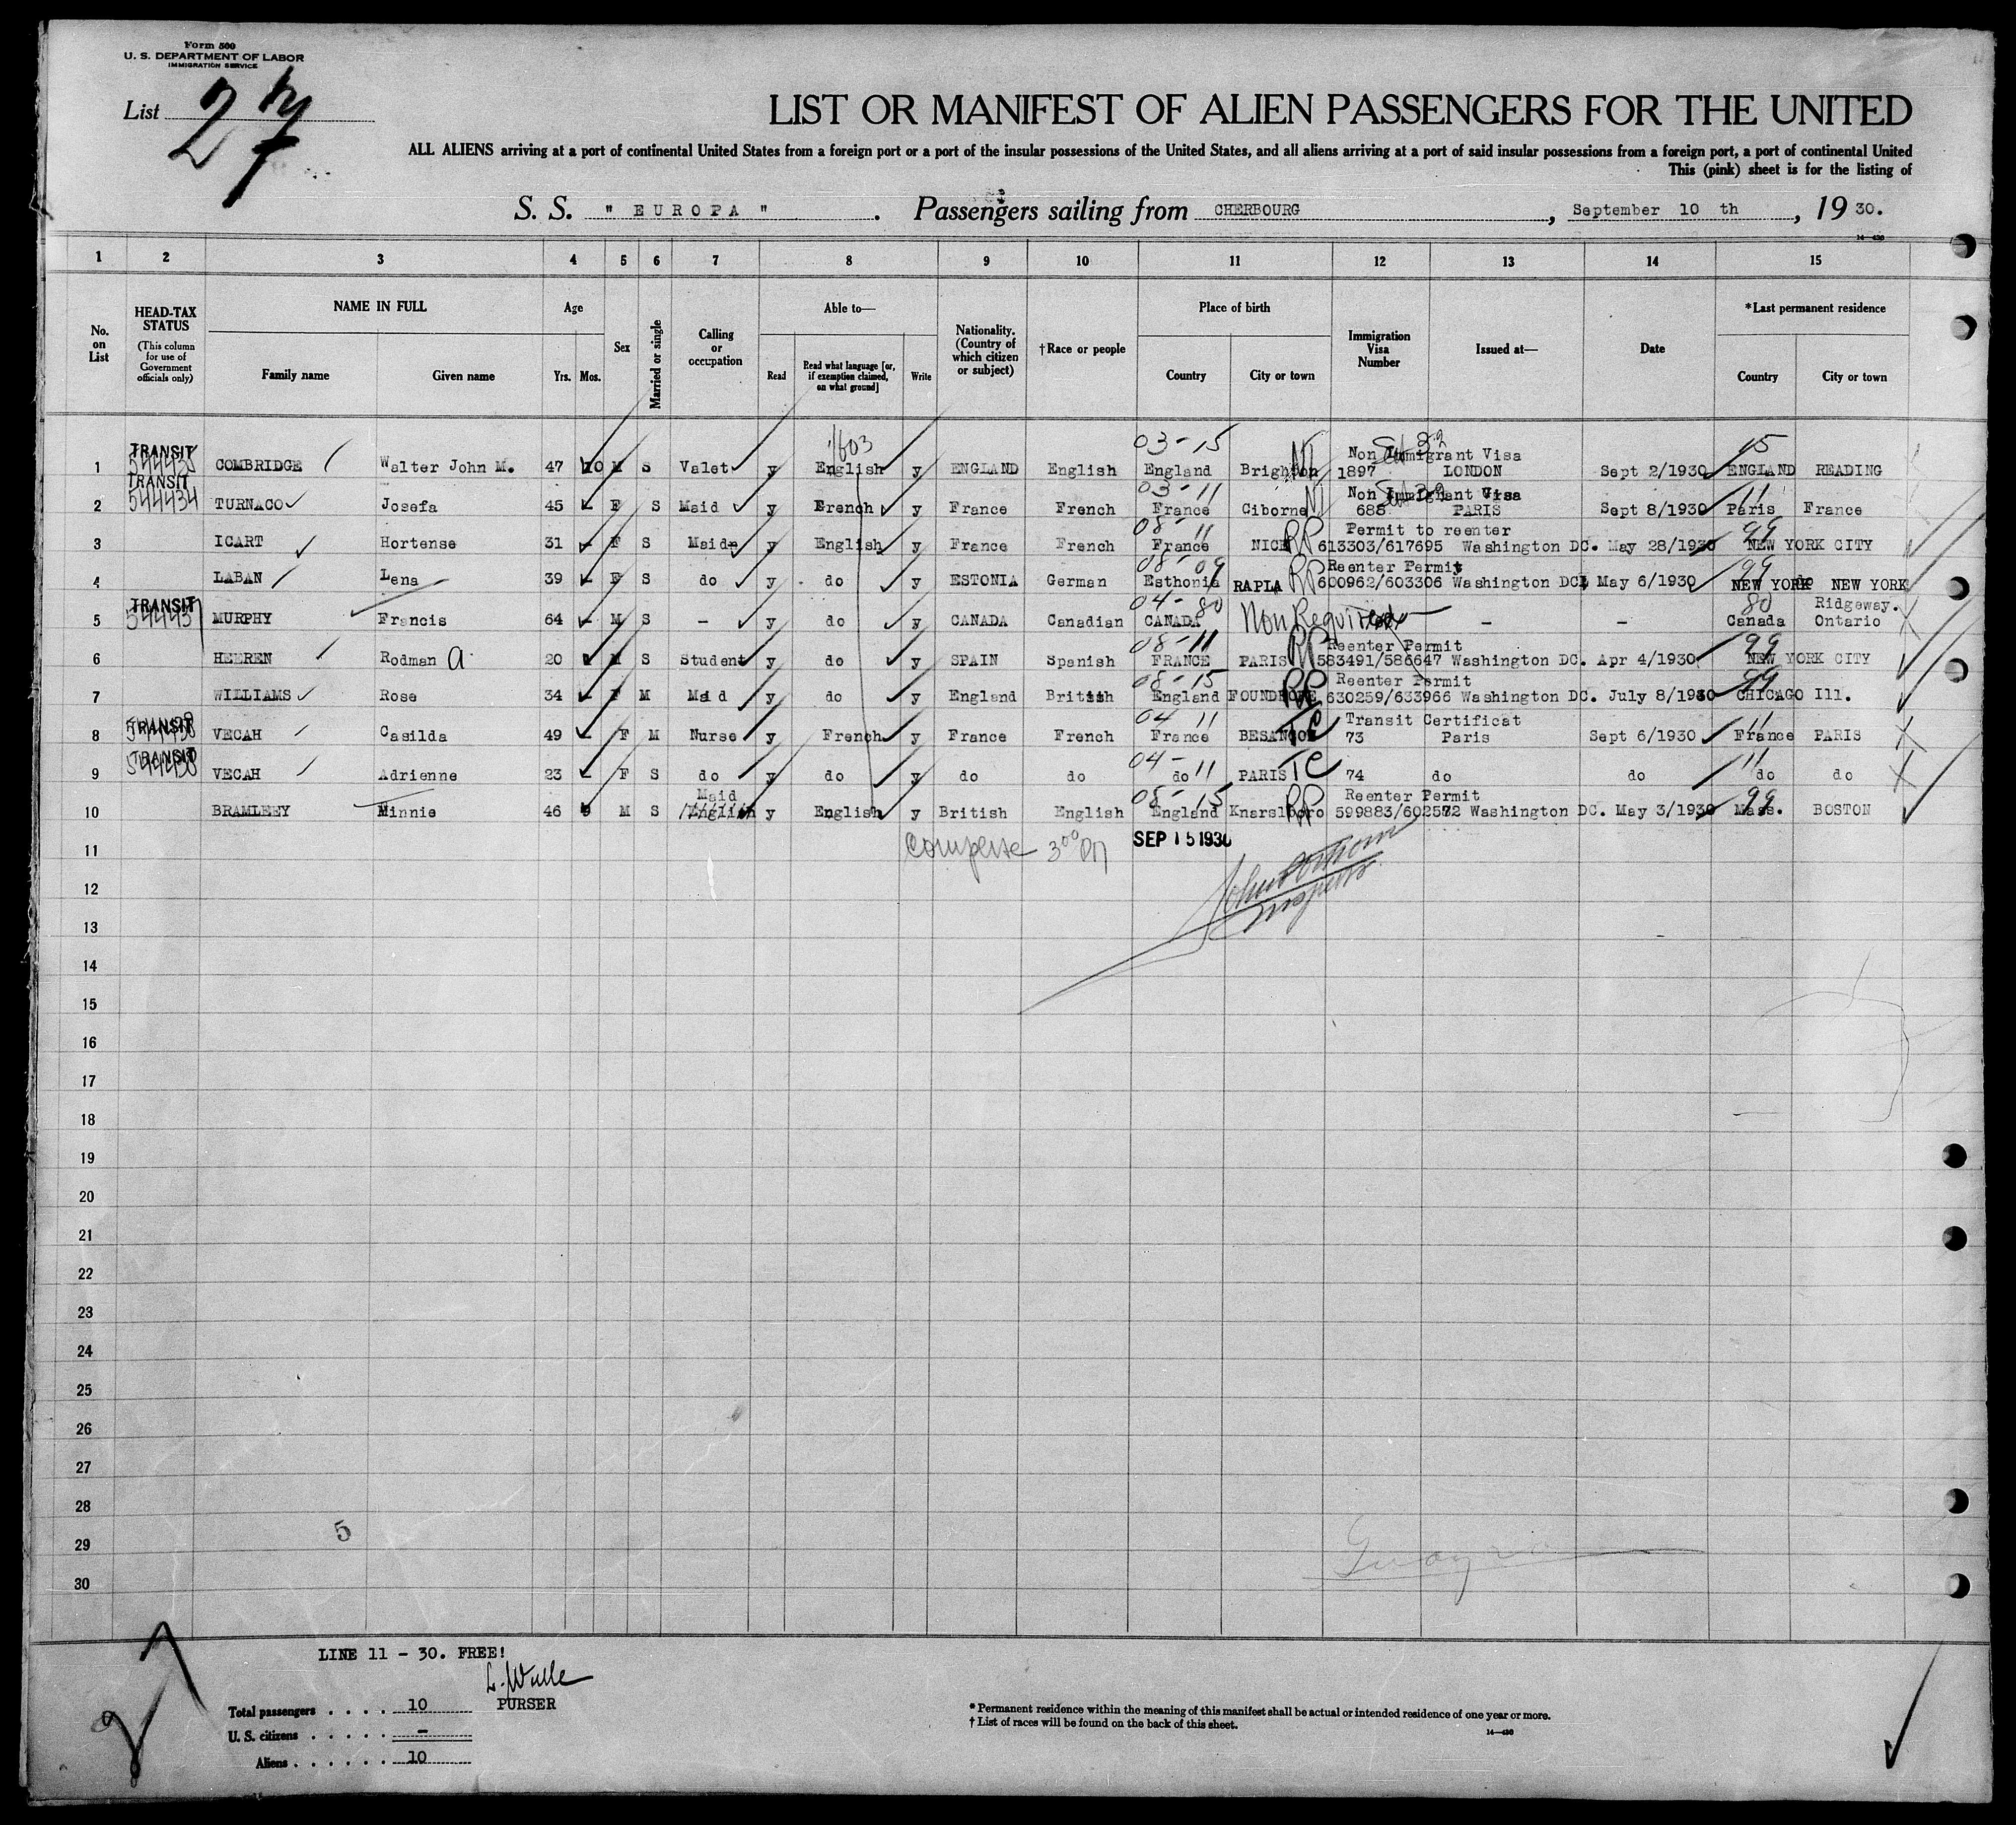 Form 500
U. S. DEPARTMENT OF LABOR
IMMIGRATION SERVICE
List 27
LIST OR MANIFEST OF ALIEN PASSENGERS FOR THE UNITED
ALL ALIENS arriving at a port of continental United States from a foreign port or a port of the insular possessions of the United States, and all aliens arriving at a port of said insular possessions from a foreign port, a port of continental United
This (pink) sheet is for the listing of
S. S. " EUROPA " . Passengers sailing from CHERBOURG , September 10 th , 19 30.
14—436
1 2 3 4 5 6 7 8 9 10 11 12 13 14 15
No. on List
HEAD-TAX STATUS (This column for use of Government officials only)
NAME IN FULL
Family name Given name
Age
Yrs. Mos.
Sex
Married or single
Calling or occupation
Able to—
Read
Read what language [or, if exemption claimed, on what ground]
Write
Nationality. (Country of which citizen or subject)
†Race or people
Place of birth
Country City or town
Immigration Visa Number
Issued at—
Date
*Last permanent residence
Country City or town
1603 03-15 15
TRANSIT Non Immigrant Visa
1 COMBRIDGE Walter John M. 47 10 M S Valet y English y ENGLAND English England Brighton 1897 LONDON Sept 2/1930 ENGLAND READING
TRANSIT 03-11 Non Immigrant Visa 11
2 544434 TURNACO Josefa 45 - F S Maid y French y France French France Ciborne 688 PARIS Sept 8/1930 Paris France
08-11 RP Permit to reenter 99
3 ICART Hortense 31 - F S Maid y English y France French France NICE 613303/617695 Washington DC. May 28/1930 NEW YORK CITY
08-09 RP Reenter Permit 99
4 LABAN Lena 39 - F S do y do y ESTONIA German Esthonia RAPLA 600962/603306 Washington DC. May 6/1930 NEW YORK NEW YORK
TRANSIT 04-80 80 Ridgeway.
5 MURPHY Francis 64 - M S - y do y CANADA Canadian CANADA Non Required - - Canada Ontario
08-11 RP Reenter Permit 99
6 HEEREN Rodman A 20 M S Student y do y SPAIN Spanish FRANCE PARIS 583491/586647 Washington DC. Apr 4/1930 NEW YORK CITY
08-15 RP Reenter Permit 99
7 WILLIAMS Rose 34 - F M Maid y do y England British England 630259/633966 Washington DC. July 8/1930 CHICAGO Ill.
TRANSIT 04 11 TC Transit Certificat 11
8 VECAH Casilda 49 - F M Nurse y French y France French France BESANCON 73 Paris Sept 6/1930 France PARIS
TRANSIT 04-11 TC 11
9 VECAH Adrienne 23 - F S do y do y do do do PARIS 74 do do do do
Maid 08-15 RP Reenter Permit 99
10 BRAMLEEY Minnie 46 M S English y English y British English England Knarslboro 599883/602572 Washington DC. May 3/1930 Mass. BOSTON
11 3 00 PM SEP 15 1930
12
13
14
15
16
17
18
19
20
21
22
23
24
25
26
27
28
5
29
30
LINE 11 - 30. FREE!
PURSER
Total passengers . . . . 10
U. S. citizens . . . . . -
Aliens . . . . . . 10
* Permanent residence within the meaning of this manifest shall be actual or intended residence of one year or more.
† List of races will be found on the back of this sheet.
14—436